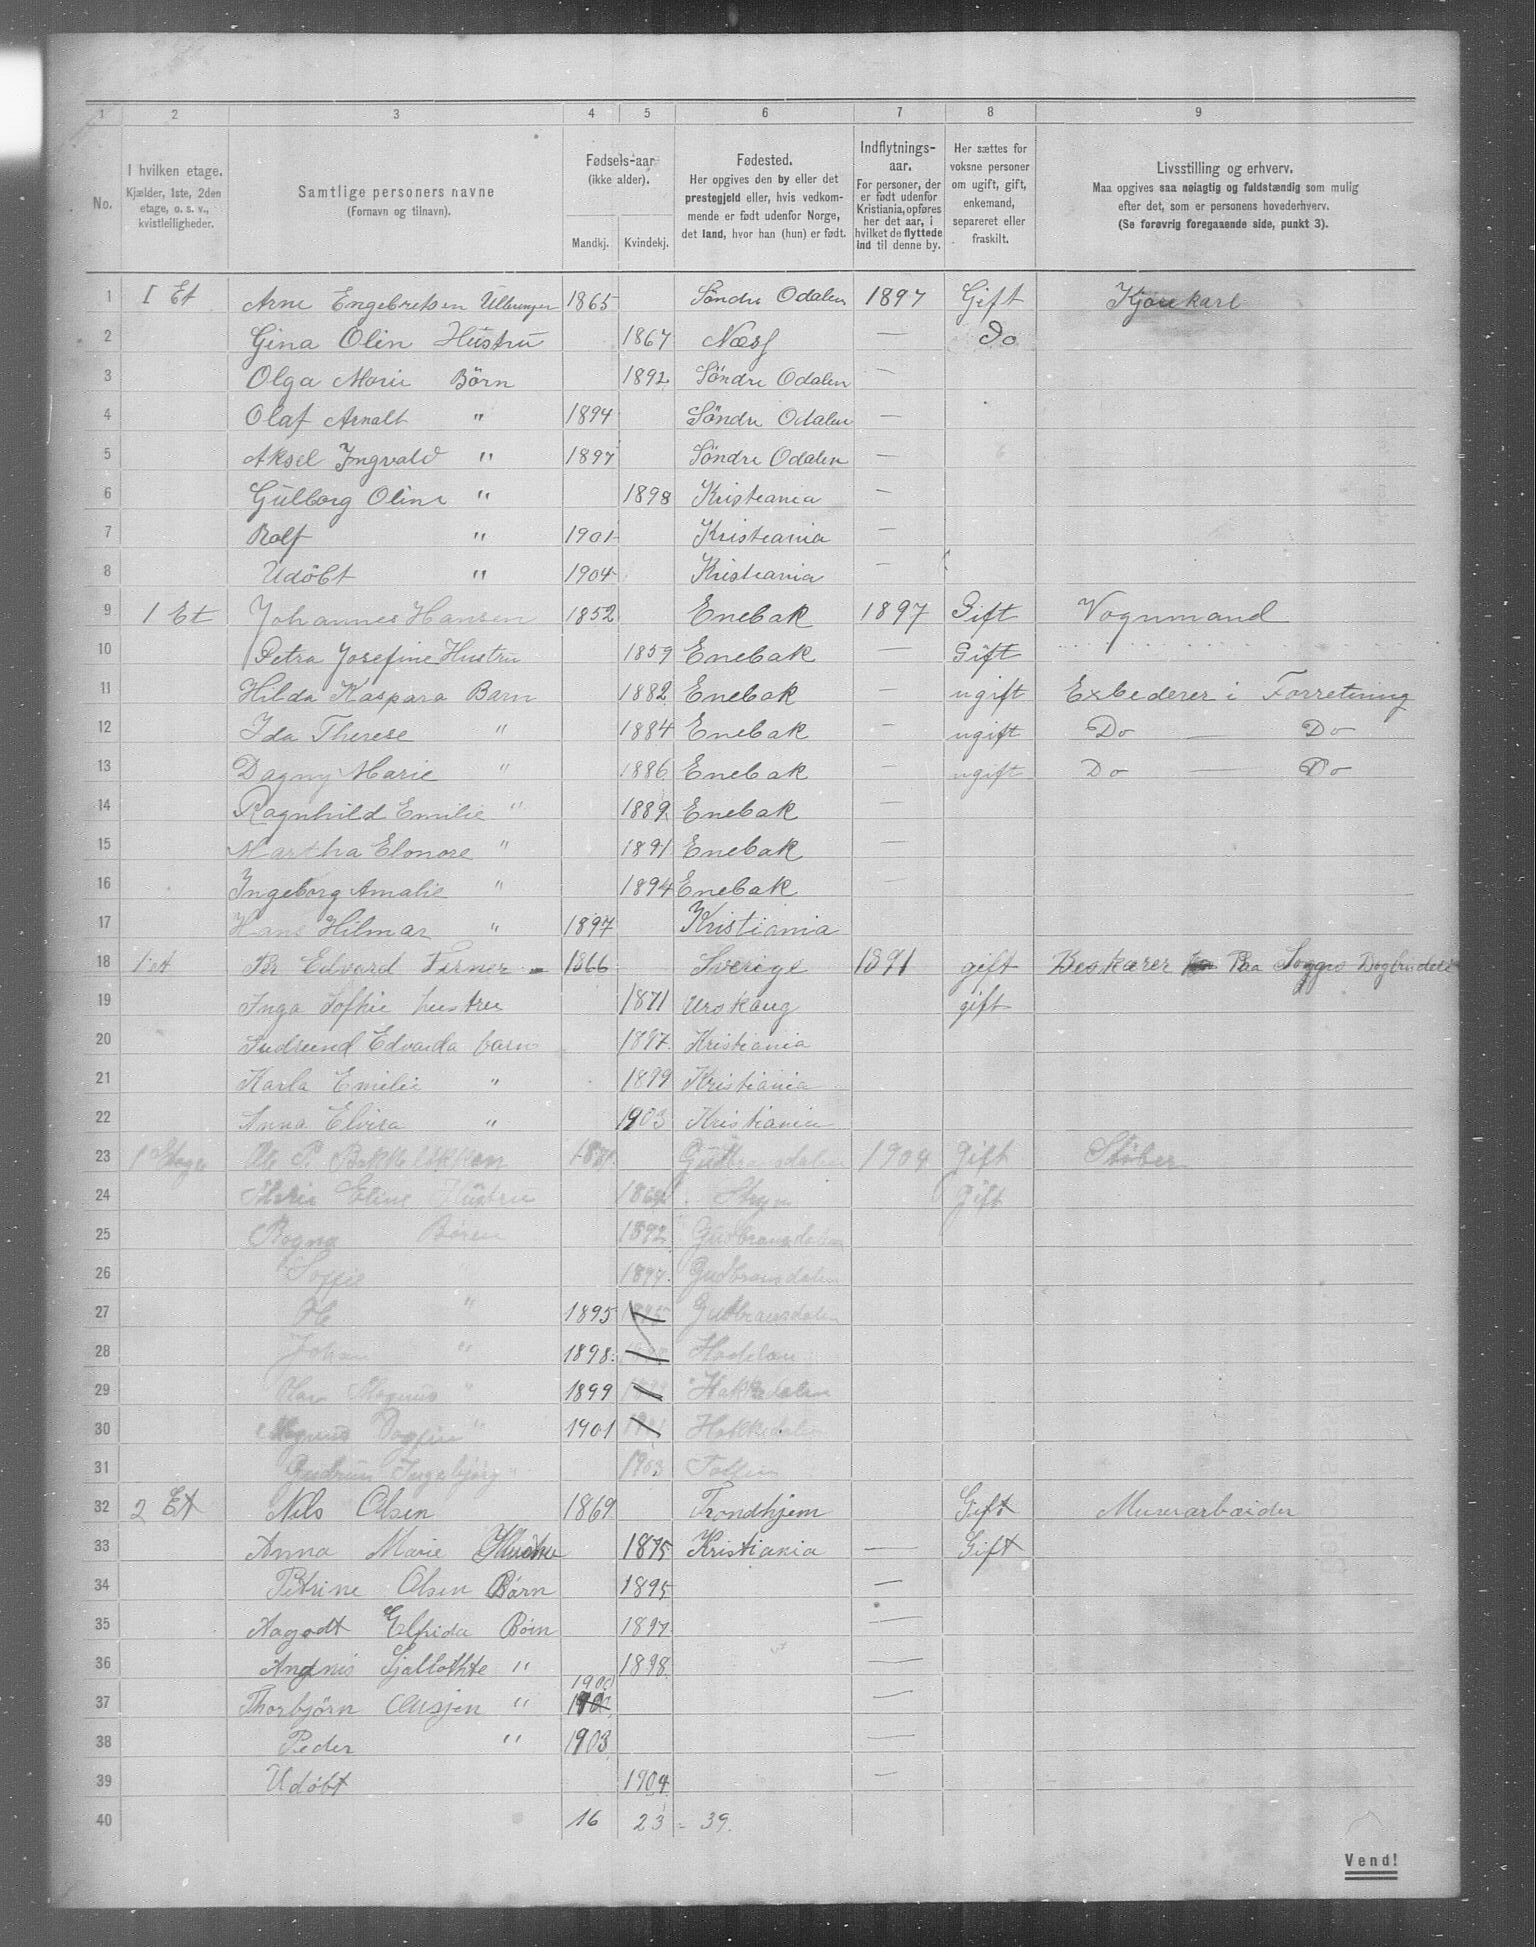 1 2 3 4 5 6 7 8 9
No.
I hvilken etage.
Kjælder, 1ste, 2den
etage, o. s. v.,
kvistleiligheder.
Samtlige personers navne
(Fornavn og tilnavn).
Fødsels-aar
(ikke alder).
Mandkj. Kvindekj.
Fødested.
Her opgives den by eller det
prestegjeld eller, hvis vedkom-
mende er født udenfor Norge,
det land, hvor han (hun) er født.
Indflytnings-
aar.
For personer, der
er født udenfor
Kristiania, opføres
her det aar, i
hvilket de flyttede
ind til denne by.
Her sættes for
voksne personer
om ugift, gift,
enkemand,
separeret eller
fraskilt.
Livsstilling og erhverv.
Maa opgives saa nøiagtig og fuldstændig som mulig
efter det, som er personens hovederhverv.
(Se forøvrig foregaaende side, punkt 3).
1 I Et Arne Engebretsen 1865 Söndre Odalen 1897 Gift Kjørekarl
2 Gina Olin Hustru 1867 Næss — Do
3 Olga Marie Børn 1892 Söndre Odalen —
4 Olaf Arnalt " 1894 Söndre Odalen —
5 Aksel Ingvald " 1897 Söndre Odalen —
6 Gulborg Oline " 1898 Kristiania —
7 Rolf " 1901 Kristiania —
8 Udöbt " 1904 Kristiania —
9 1 Et Johannes Hansen 1852 Enebak 1897 Gift Vognmand
10 Petra Josefine Hustru 1859 Enebak — Gift
11 Hilda Kaspara Barn 1882 Enebak — ugift Exbederer i Forretning
12 Ida Therese " 1884 Enebak — ugift Do — Do
13 Dagny Marie " 1886 Enebak — ugift Do — Do
14 Ragnhild Emilie " 1889 Enebak —
15 Martha Elonore " 1891 Enebak —
16 Ingeborg Amalie " 1894 Enebak —
17 Hans Hilmar " 1897 Kristiania
18 1 et Edvard 1866 Sverige 1891 gift Beskærer Paa
19 Inga Sofhie hustru 1871 Urskaug gift
20 Edvarda barn 1897 Kristiania
21 Karla Emilie " 1899 Kristiania
22 Anna Elvira " 1903 Kristiania
23 1 Ole P. Gudbransdalen 1904 Gift Støber
24 Marie Eline Hustru Stryn Gift
25 Ragna Børen 1892 Gudbransdalen
26 Soffie 1894 Gudbransdalen
27 Ole " 1895 Gudbransdalen
28 Johan " 1898
29 Olav Magnus " 1899 Hakkedalen
30 Magnus Dagfin " 1901 Hakkedalen
31 Gudrun Ingebjørg " 1903
32 2 Et Nils Olsen 1869 Trondhjem Gift Murerarbeider
33 Anna Marie Hustru 1875 Kristiania — Gift
34 Petrine Olsen Børn 1895 —
35 Aagodt Elfrida Børn 1897 —
36 Sjallothte " 1898 —
37 Thorbjørn " 1900 —
38 Peder " 1903 —
39 Udøbt 1904 —
40 16 23 = 39.
Vend!